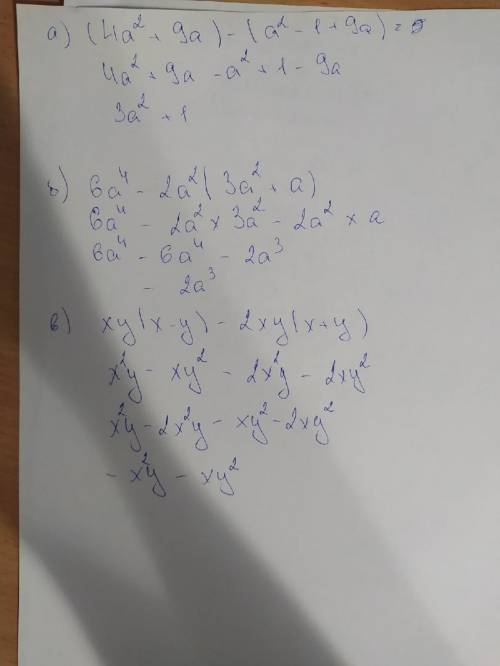 а) (4a² + 9a) - (a² - 1 + 9a) =
4a² + 9a - a² + 1 - 9a
3a² + 1
б) 6a⁴ - 2a² (3a² + a)
6a⁴ - 2a² × 3a² - 2a² × a
6a⁴ - 6a⁴ - 2a³
- 2a³
в) xy(x-y) - 2xy(x+y)
x²y - xy² - 2x²y - 2xy²
x²y - 2x²y - xy² - 2xy²
- x²y - xy²